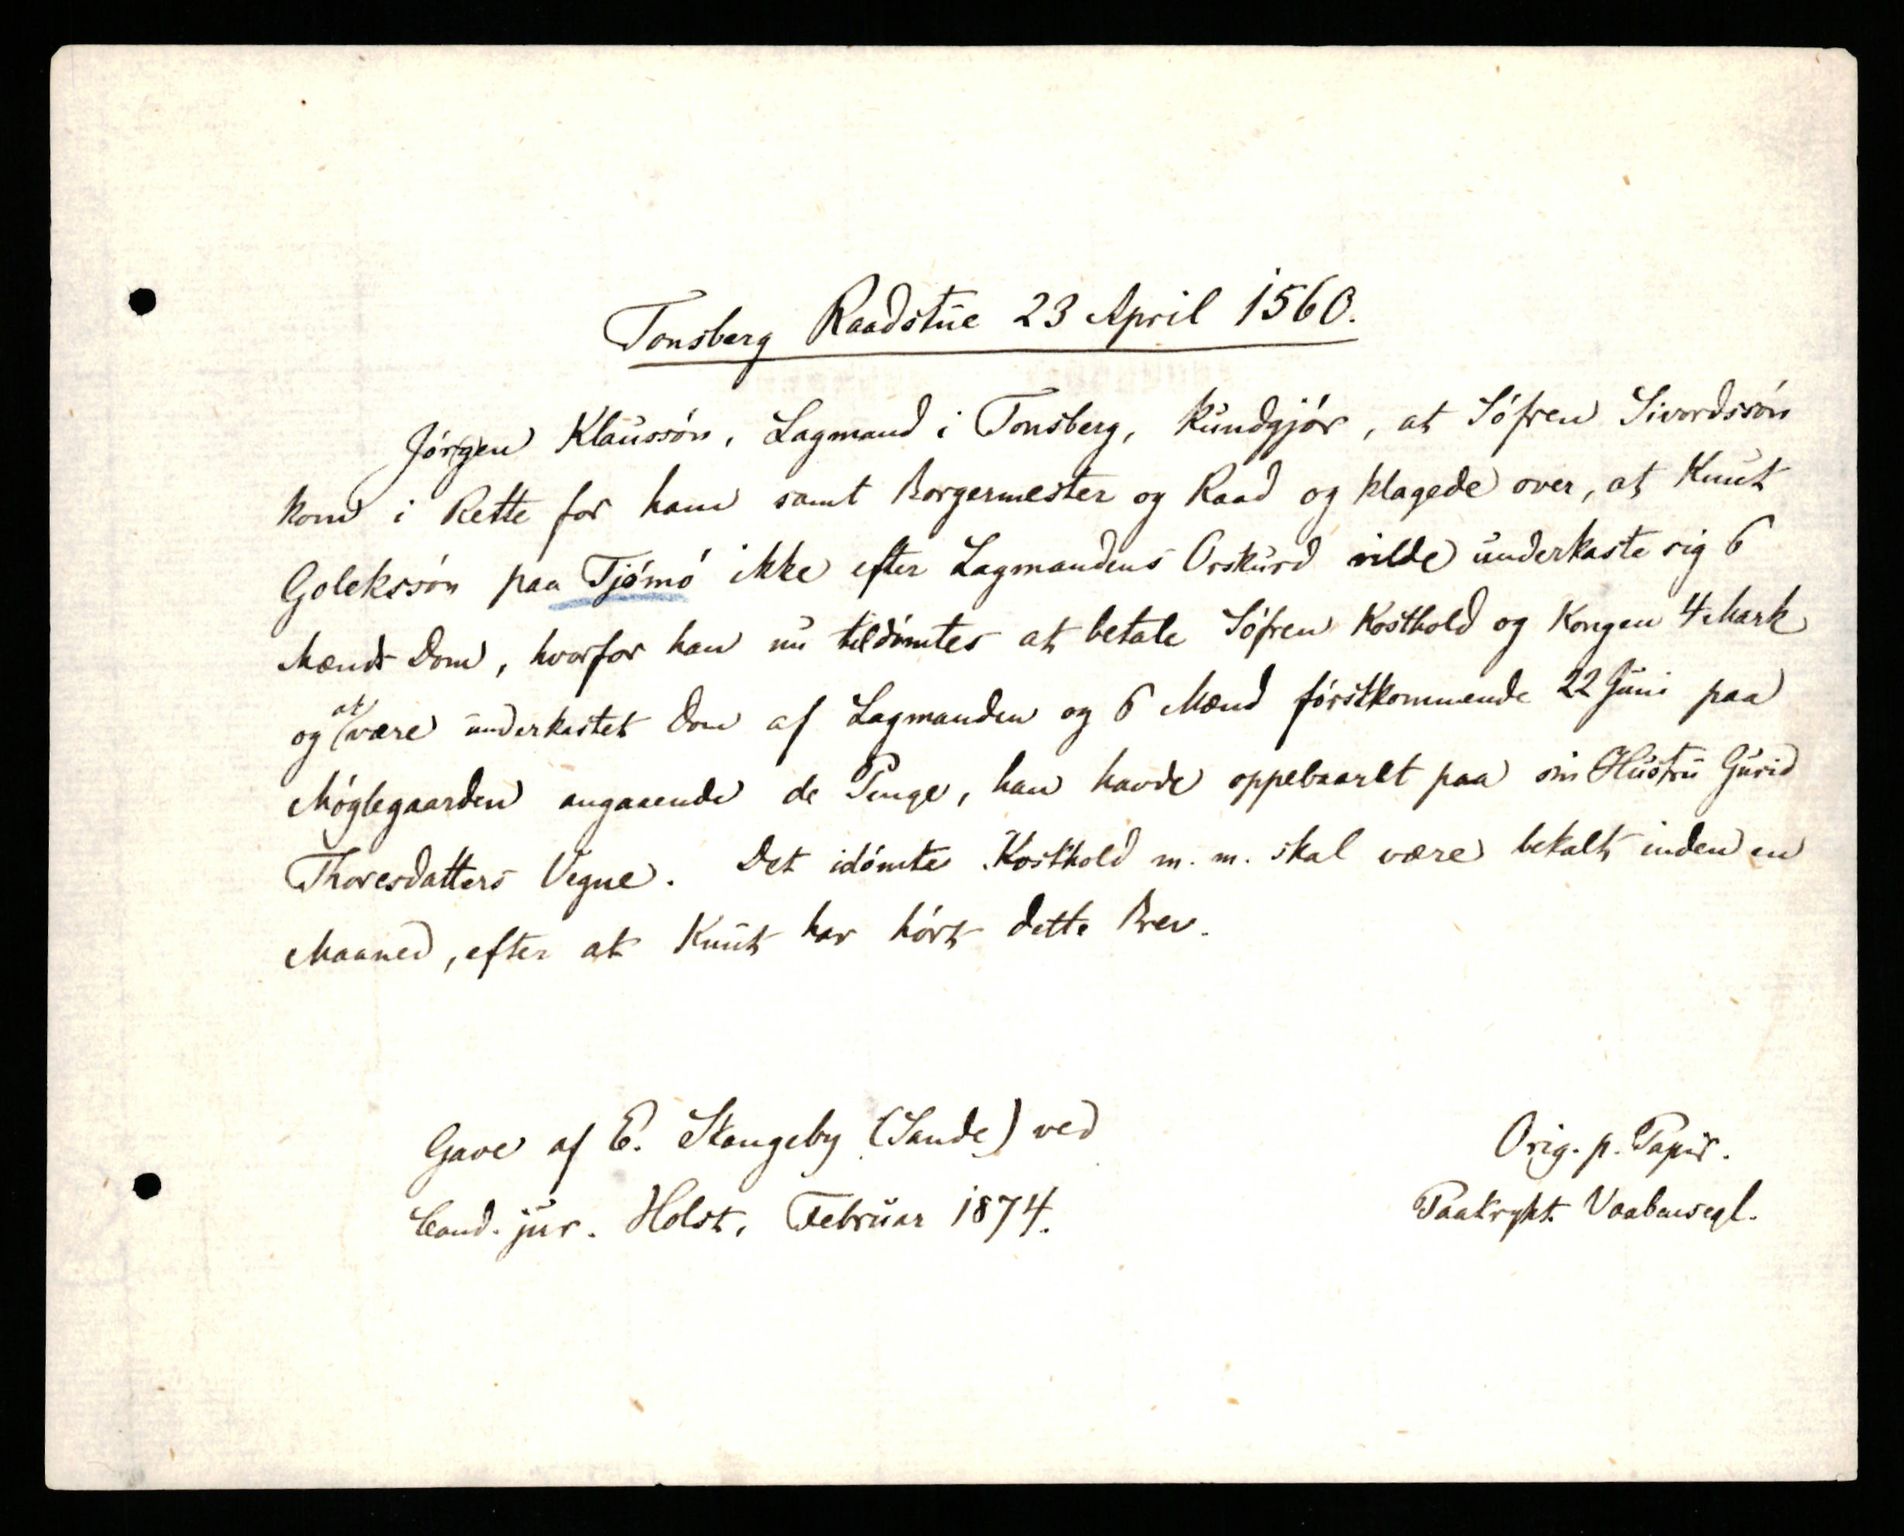 Tonsberg Raadstue 23 April 1560.
Jörgen Klaussön, Lagmand i Tonsberg, kundgjör, at Söfren Sivordssön
kom i Rette for ham samt Borgermester og Raad og klagede over, at Knut
Golekssön paa Tjömö ikke efter Lagmandens Orskurd vilde underkaste sig 6
Mænds Dom, hvorfor han nu tildömtes at betale Söfren Kosthold og Kongen 4 Mark
og at være underkastet Dom af Lagmanden og 6 Mænd förstkommende 22 Juni paa
Möglegaarden angaaende de Penge, han havde oppebaaret paa sin Hustru Gurid
Thoresdatters Vegne. Det idömte Kosthold m. m. skal være betalt inden en
Maaned, efter at Knut har hört dette Brev.
Gave af E. Stangeby (Sande) ved
Cand. jur. Holst, Februar 1874.
Orig. p. Papir.
Paatrykt Vaabensegl.